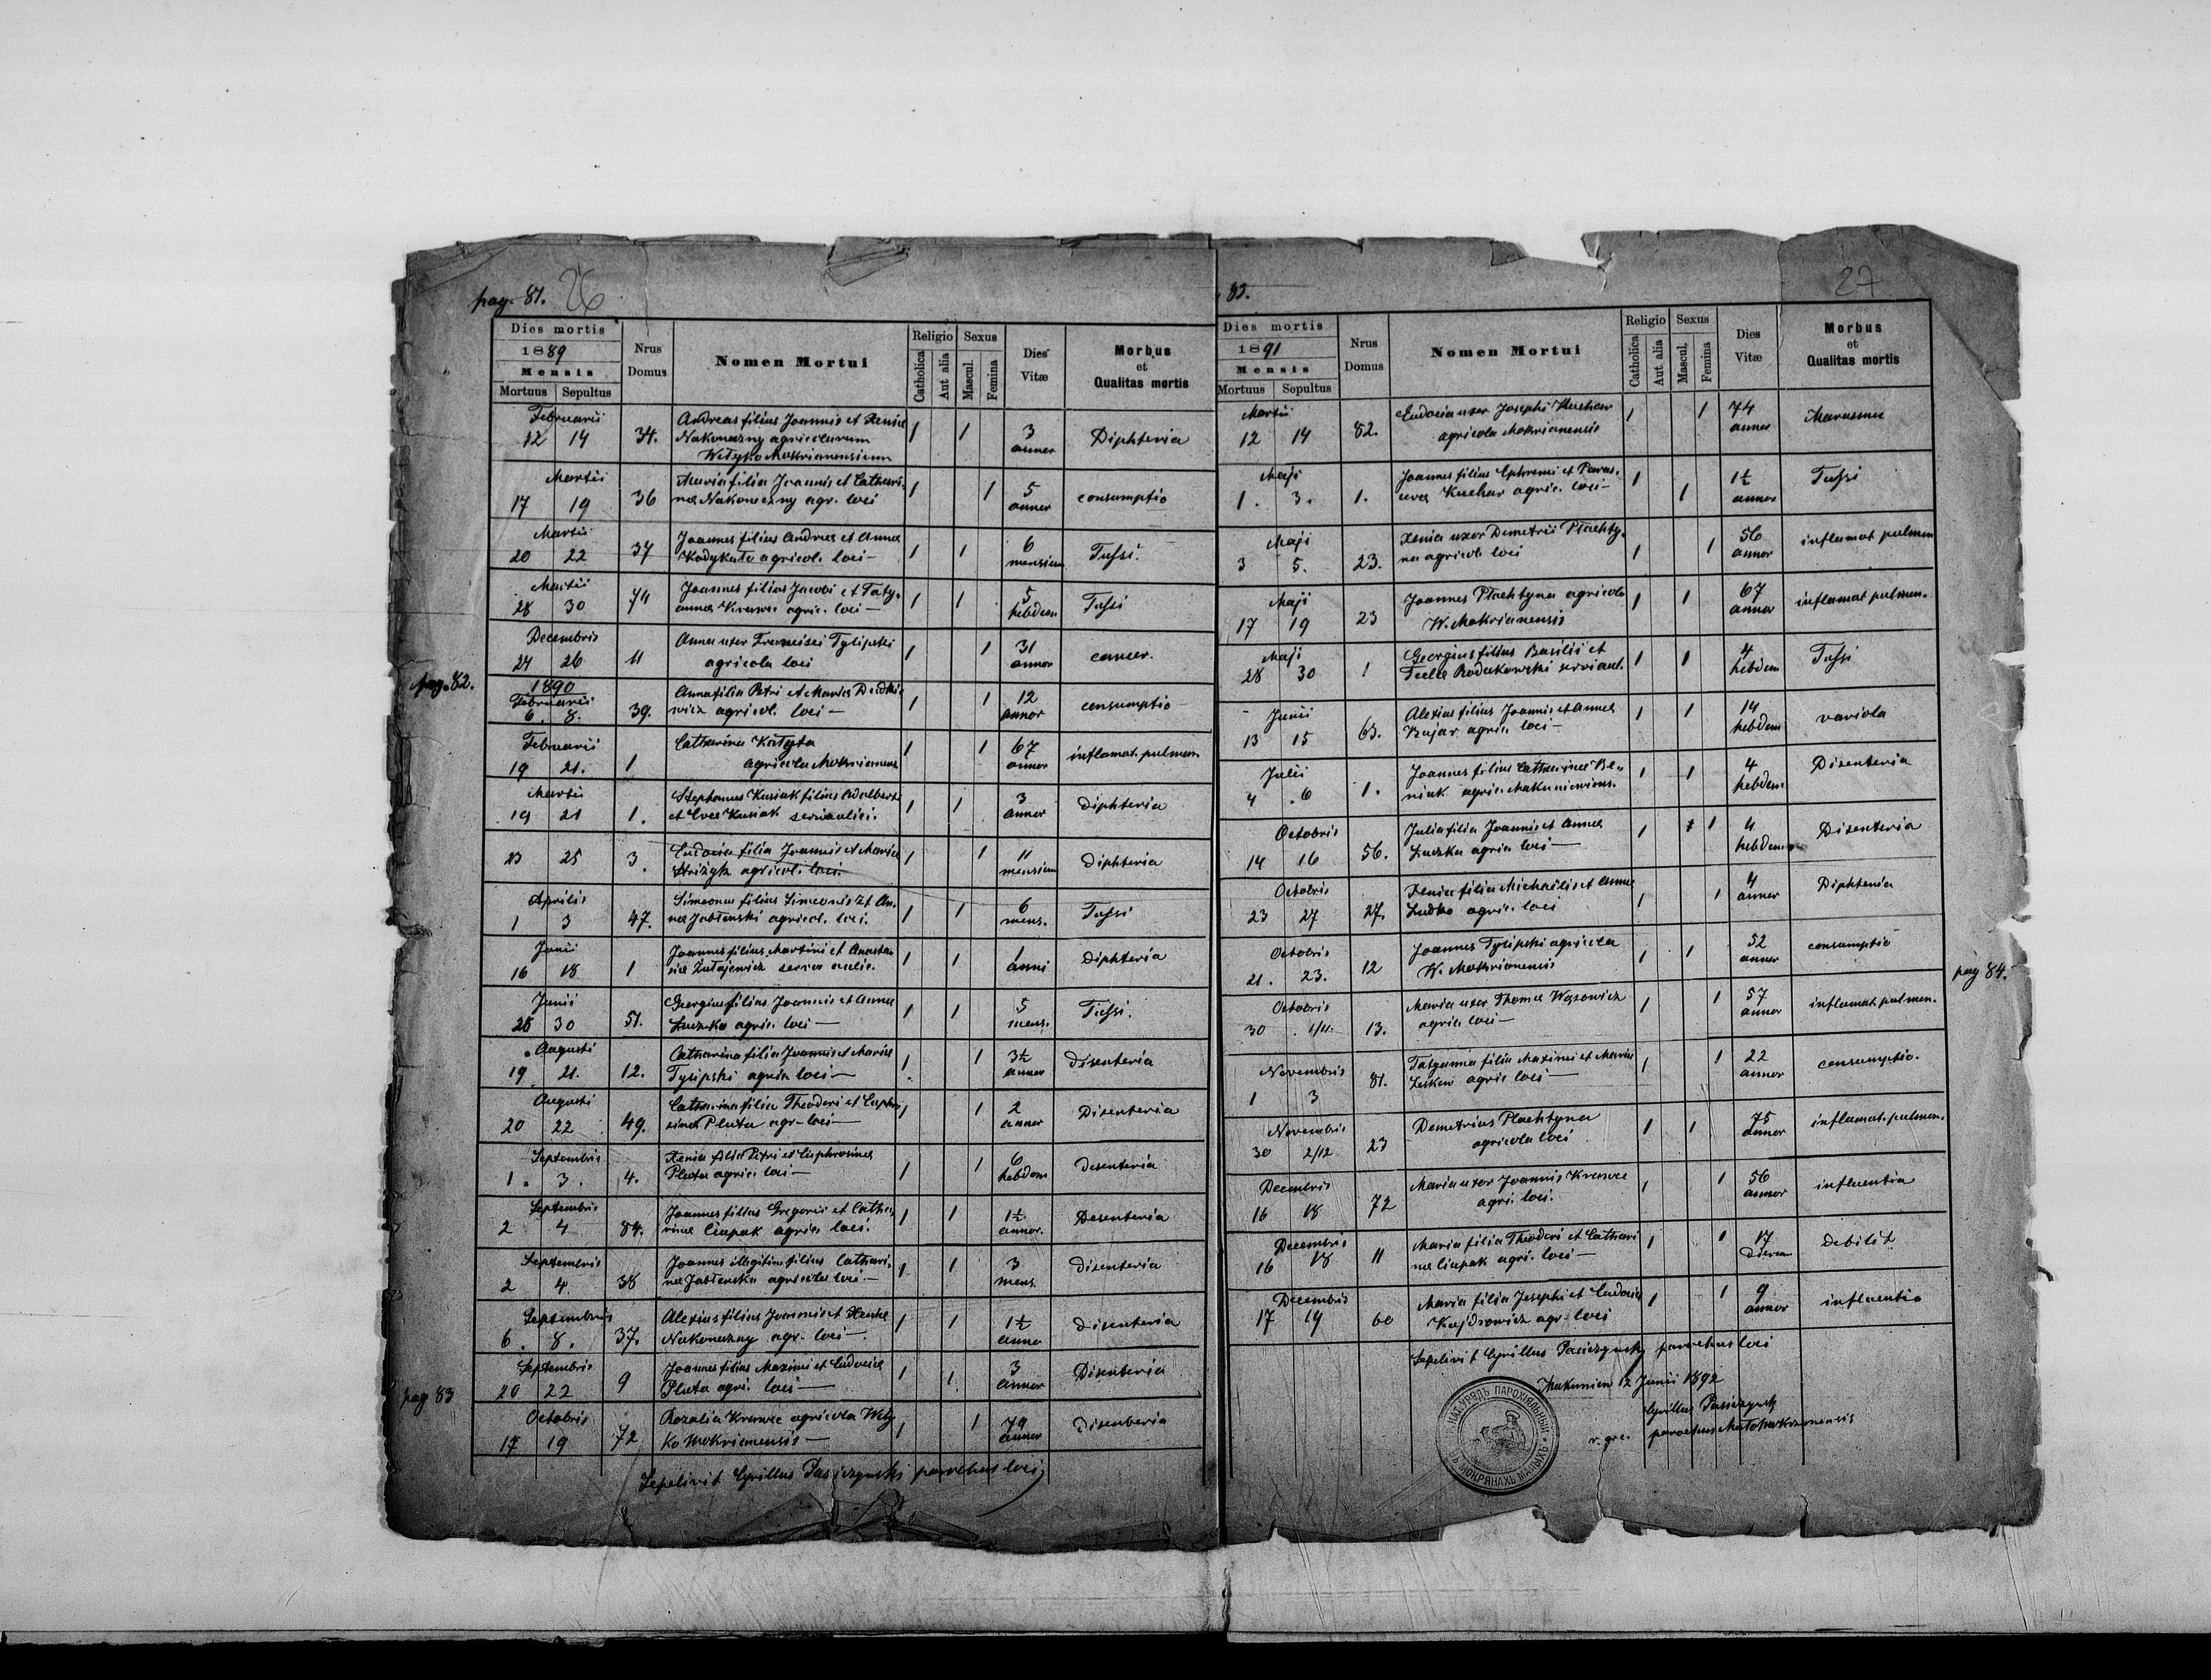 pag. 81. 26
Dies mortis
1889
Mensis
Mortuus Sepultus
Nrus
Domus
Nomen Mortui
Religio
Catholica
Aut alia
Sexus
Mascul.
Femina
Dies
Vitæ
Morbus
et
Qualitas mortis
Februarii
12 14 34. Andreas filius Joannis et Xeniae
Nakonezny agricolarum
Wełyko Mokrianensium
1 1 3
annor
Diphteria
Martii
17 19 36 Maria filia Joannis et Cathari,
nae Nakoneczny agr. loci
1 1 5
annor
consumptio
Martii
20 22 37 Joannes filius Andreae et Annae
agricol. loci —
1 1 6
mensium
Tussi.
Martii
28 30 74 Joannes filius Jacobi et Taty,
annae Krawec agric. loci —
1 1 5
hebdom
Tussi
Decembris
24 26 11 Anna uxor Francisci Tylipski
agricola loci
1 1 31
annor
cancer.
pag. 82.
1890
Februarii
6. 8. 39. Anna filia Petri et Mariae
agricol. loci —
1 1 12
annor
consumptio
Februarii
19 21. 1 Catharina
agricola
1 1 67
annor
inflamat. pulmon
Martii
19 21 1. Stephanus Kusiak filius Adalberti
et Evae Kusiak
1 1 3
annor
diphteria
23 25 3. Eudocia filia Joannis et Mariae
agricol. loci.
1 1 11
mensium
diphteria
Aprilis
1 3 47. Simeonus filius Simeonis et An,
nae Jabłonski agricol. loci.
1 1 6
mens.
Tussi
Junii
16 18 1 Joannes filius Martini et Anasta
siae
1 1 1
anni
diphteria
Junii
28 30 51. Georgius filius Joannis et Annae
Łuczka agric. loci —
1 1 5
mens.
Tussi.
Augusti
19 21. 12. Catharina filia Joannis et Mariae
Tylipski agric. loci —
1 1 3½
annor
disenteria
Augusti
20 22 49. Catharina filia Theodori et Euphro
sinae Pluta agr. loci —
1 1 2
annor
Disenteria
Septembris
1. 3. 4. Xenia filia Petri et Euphrosinae
Pluta agric. loci —
1 1 6
hebdom
Desenteria
Septembris
2 4 84. Joannes filius Gregorii et Catha,
rinae Ciupak agric. loci.
1 1 1½
annor.
Desenteria
Septembris
2 4. 38 Joannes illegitim filius Cathari,
nae Jabłonska agricolae loci —
1 1 3
mens.
disenteria
Septembris
6. 8. 37. Alexius filius Joannis et Xeniae
Nakonezny agr. loci —
1 1 1½
anno
disenteria
pag 83
Septembris
20 22 9 Joannes filius Maximi et Eudociae
Pluta agri. loci —
1 1 3
annor
Disenteria
Octobris
17 19 72 Rozalia Krawec agricola Wely
ko Mokrianensis —
1 1 79
annor
disenteria
Sepelivit Cyrillus Pasiczynski parochus loci
83. 27
Dies mortis
1891
Mensis
Mortuus Sepultus
Nrus
Domus
Nomen Mortui
Religio
Catholica
Aut alia
Sexus
Mascul.
Femina
Dies
Vitæ
Morbus
et
Qualitas mortis
Martii
12 14 82. Eudocia uxor Josephi Kuchar
agricola Mokrianensis
1 1 74
annor
Marasmus
Maji
1. 3. 1. Joannes filius Ephremi et Paras,
cevae Kuchar agric. loci —
1 1 1½
annor
Tussi
Maji
3 5. 23. Xenia uxor Demetrii Płachty,
na agricol. loci
1 1 56
annor
inflamat pulmon
Maji
17 19 23 Joannes Płachtyna agricola
W. Mokrianensis
1 1 67
annor
inflamat pulmon.
Maji
28 30 1 Georgius filius Basilii et
Teclae Rodakowski
1 1 4
hebdom
Tussi
Junii
13 15 63. Alexius filius Joannis et Annae
Bajar agric. loci —
1 1 14
hebdom
variola
Julii
4 6 1. Joannes filius Catharinae
agric.
1 1 4
hebdom
Disenteria
Octobris
14 16 56. Julia filia Joannis et Annae
Łuczka agric. loci —
1 1 4
hebdom
Disenteria
Octobris
23 27 27. Xenia filia Michaëlis et Annae
agric. loci
1 1 4
annor
Diphteria
Octobris
21. 23. 12 Joannes Tylipski agricola
W. Mokrianensis
1 1 52
annor
consumptio
pag 84.
Octobris
30 1/11. 13. Maria uxor Thomae Wąsowicz
agric. loci —
1 1 57
annor
inflamat. pulmon.
Novembris
1 3 81. Tatyanna filia Maximi et Mariae
agric. loci —
1 1 22
annor
consumptio.
Novembris
30 2/12 23 Demetrius Płachtyna
agricola loci
1 1 75
annor
inflamat. pulmon.
Decembris
16 18 72 Maria uxor Joannis Krawec
agri. loci.
1 1 56
annor
influentia
Decembris
16 18 11 Maria filia Theodori et Cathari
nae Ciupak agri. loci —
1 1 17
dierum
debilit
Decembris
17 19 60 Maria filia Josephi et Eudociae
agr. loci
1 1 9
annor
influentia
Sepelivit Cyrillus Pasiczynsky parochus loci
Makuniow 12 Junii 1892
Cyrillus Pasiczynsky
r. gr. c. parochus Malo Mokrianensis
УРЯДЪ ПАРОХІЯЛЬНЫЙ МОКРЯНАХЪ МАЛЫХЪ